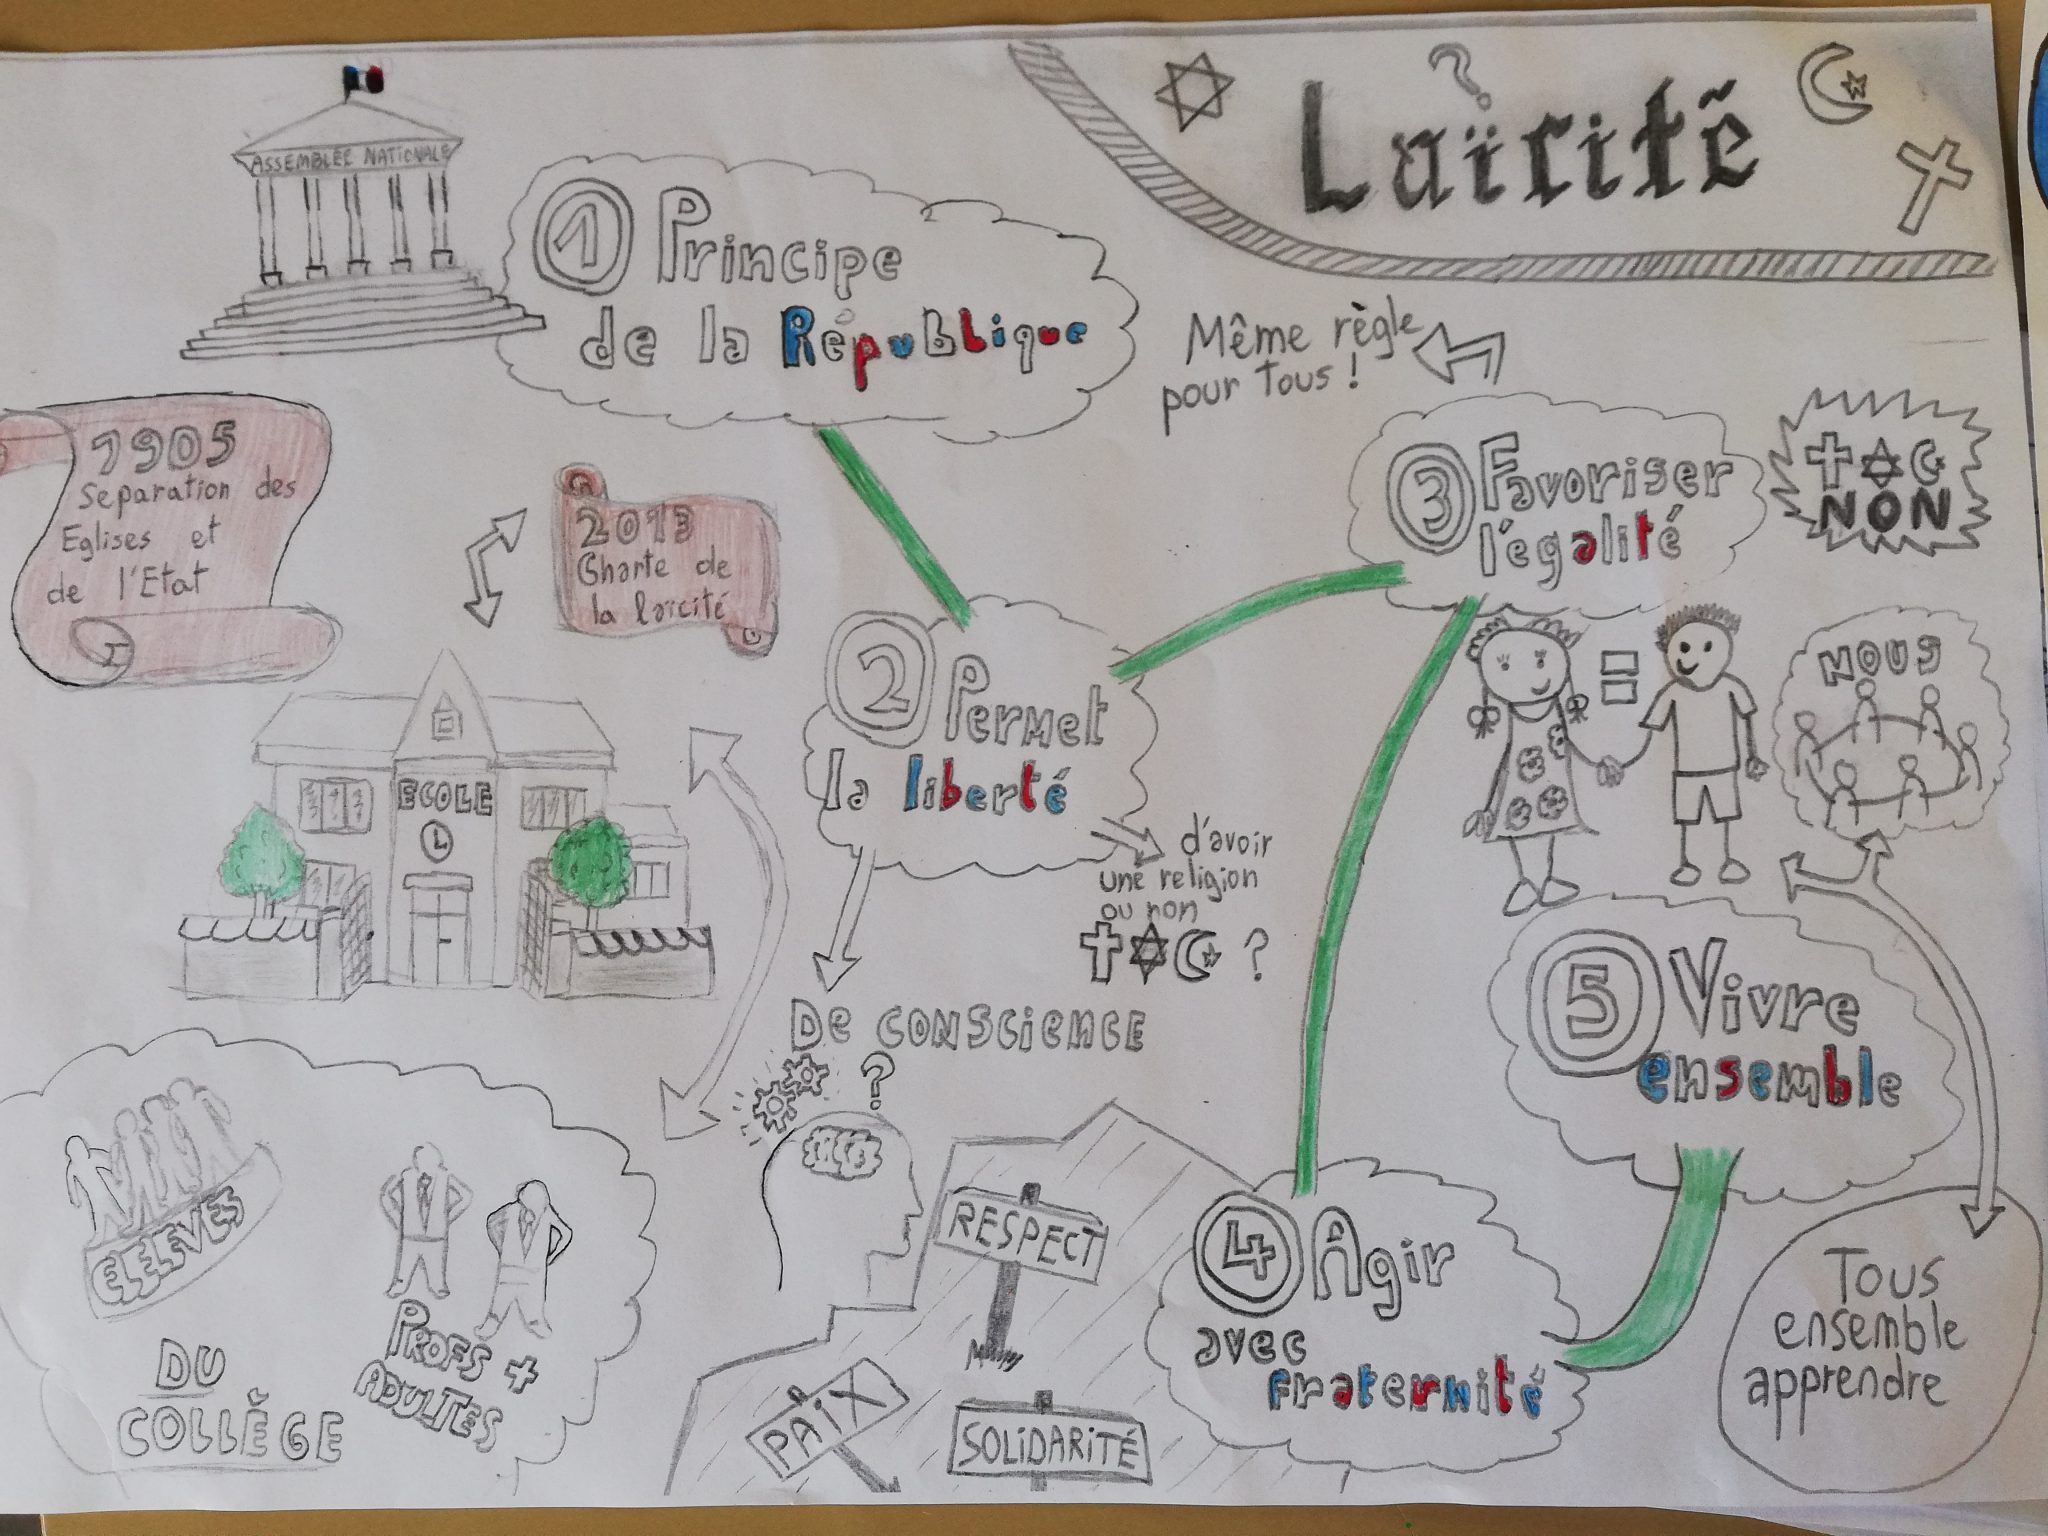 ?
Laïcité
ASSEMBLÉE NATIONALE
1 Principe
de la République
Même règle
pour tous !
1905
Separation des
Eglises et
de l'Etat
2013
Charte de
la laïcité
3 Favoriser
l'égalité
NON
2 Permet
la liberté
=
NOUS
ECOLE
L
d'avoir
une religion
ou non
?
De CONSCIENCE
?
5 Vivre
ensemble
ELEVES
PROFS +
ADULTES
DU
COLLÈGE
RESPECT
PAIX
SOLIDARITÉ
4 Agir
avec
fraternité
Tous
ensemble
apprendre